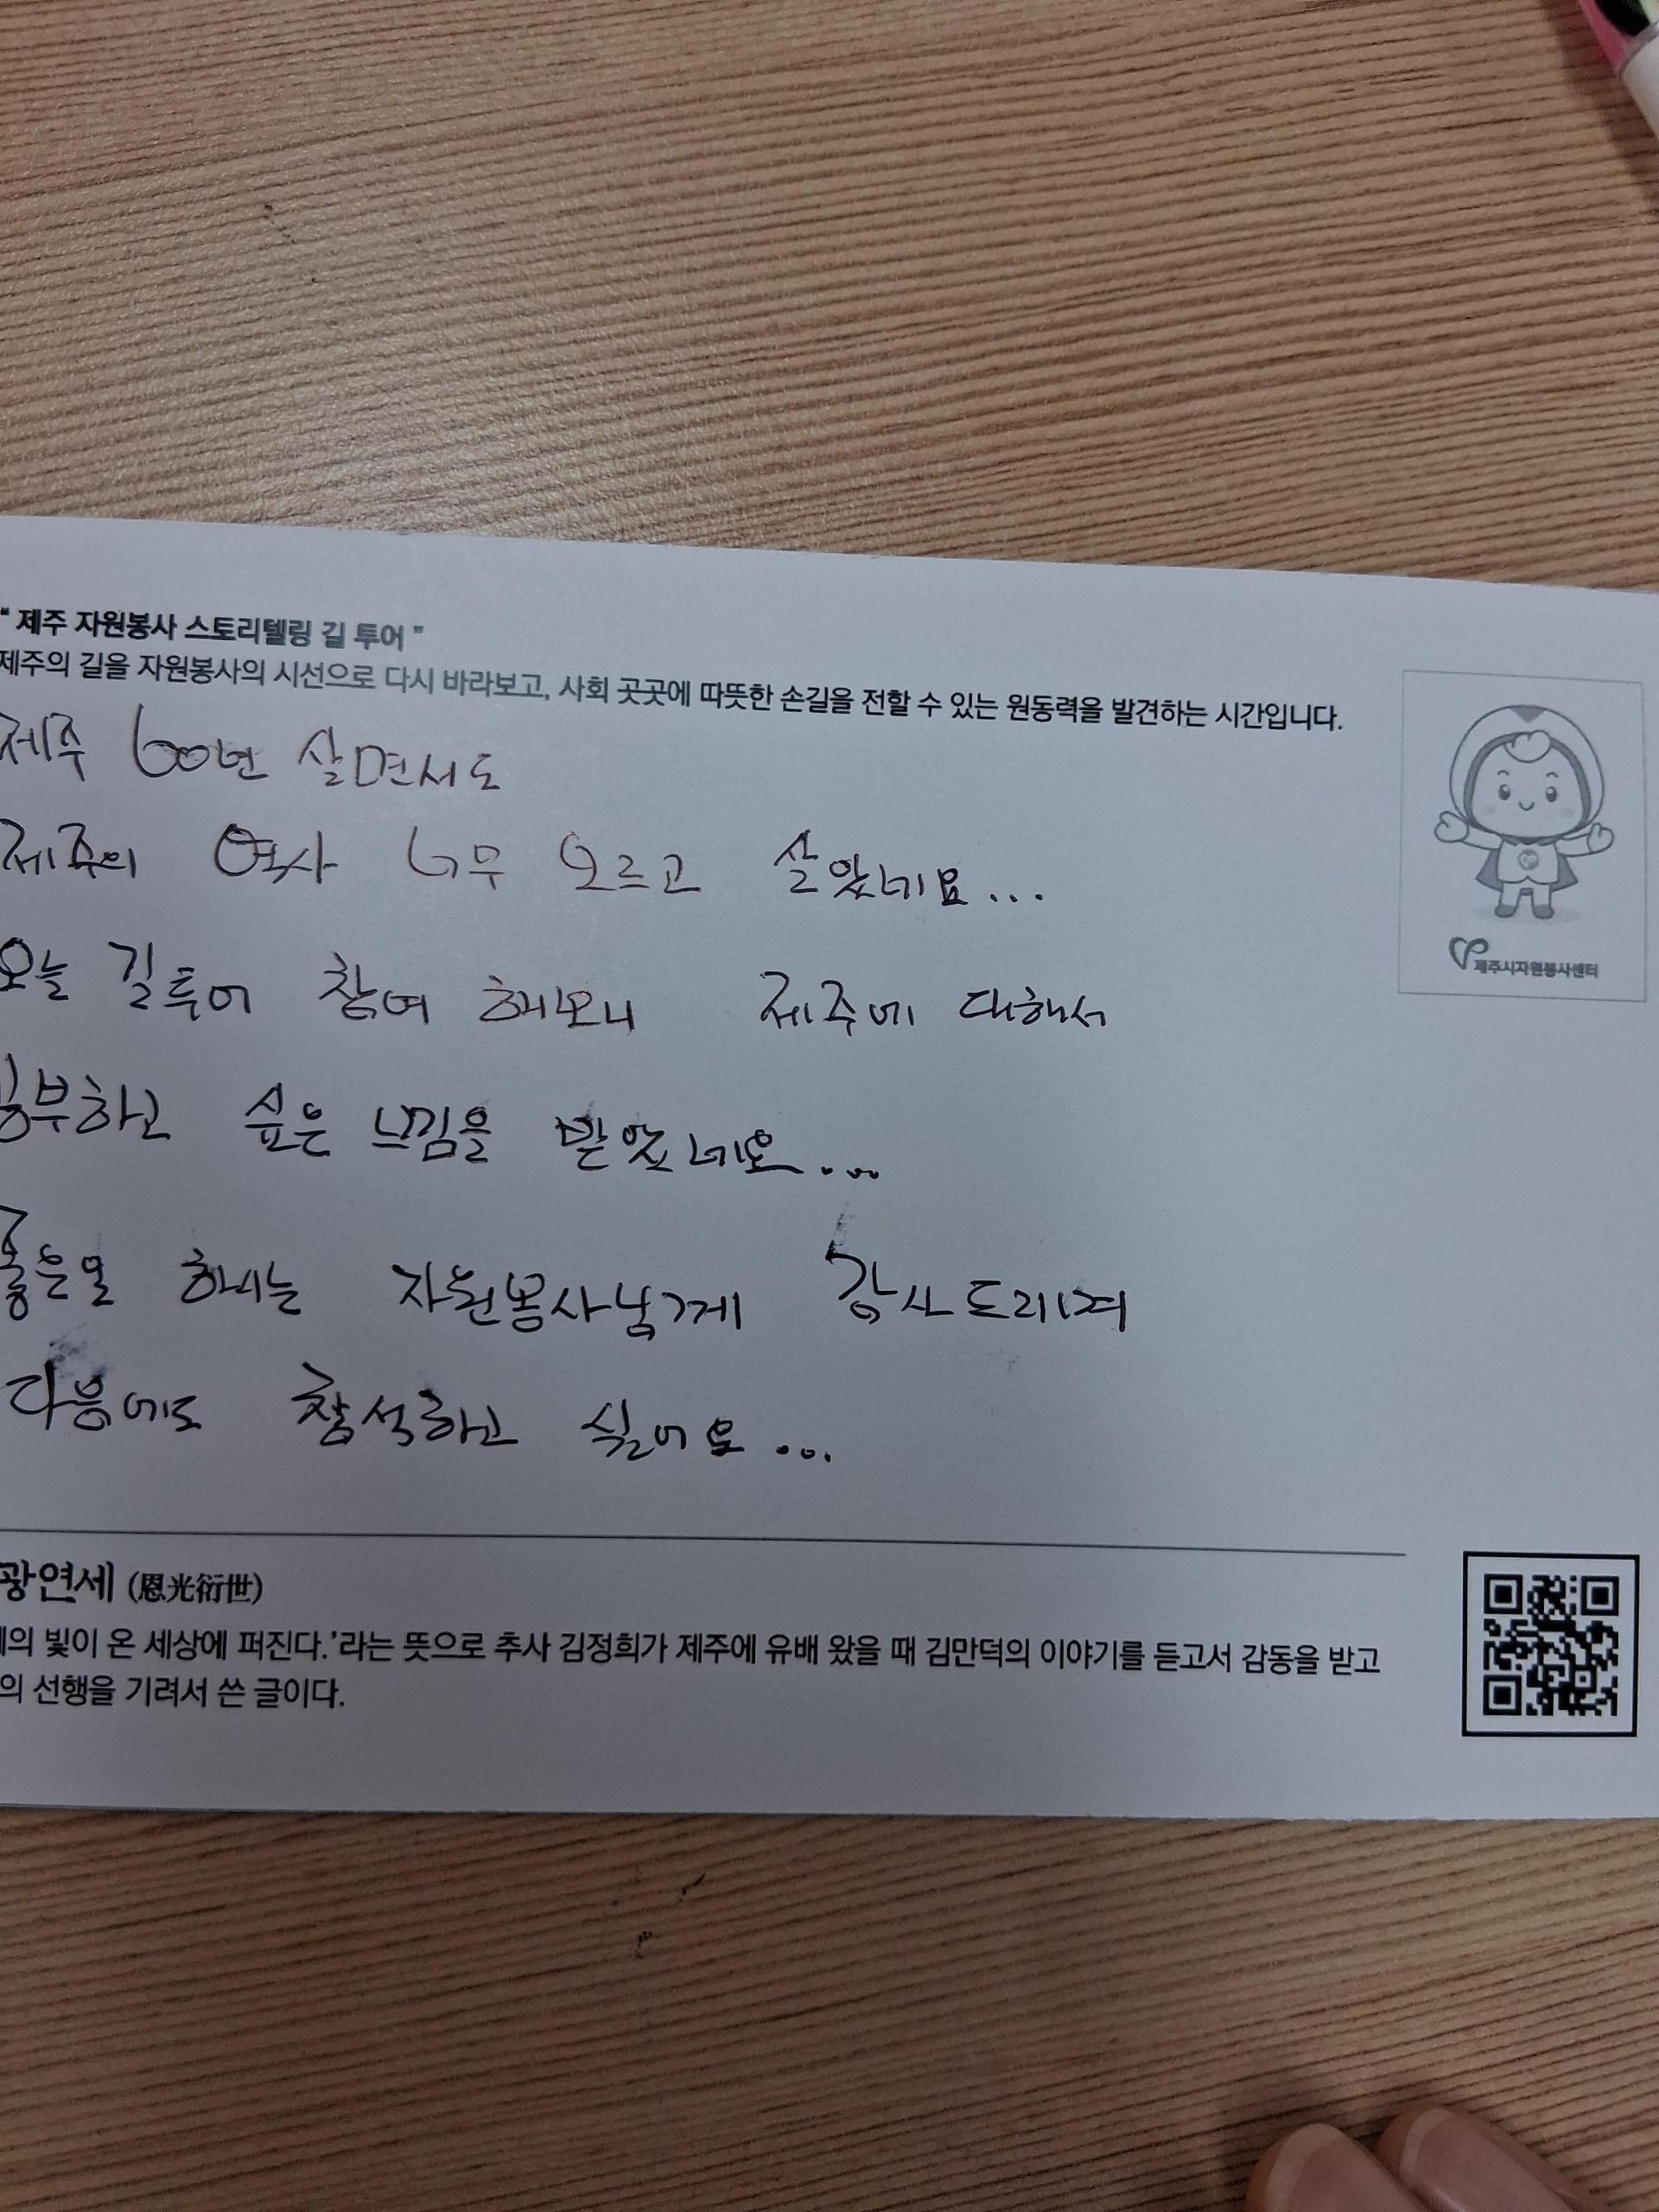 " 제주 자원봉사 스토리텔링 길 투어 "
제주의 길을 자원봉사의 시선으로 다시 바라보고, 사회 곳곳에 따뜻한 손길을 전할 수 있는 원동력을 발견하는 시간입니다.
제주 60년 살면서도
제주의 역사 너무 모르고 살았네요...
오늘 길투어 참여 해보니 제주에 대해서
공부하고 싶은 느낌을 받았네요...
좋은일 하시는 자원봉사님께 감사드리며
다음에도 참석하고 싶어요...
제주시자원봉사센터
광연세 (恩光衍世)
의 빛이 온 세상에 퍼진다.'라는 뜻으로 추사 김정희가 제주에 유배 왔을 때 김만덕의 이야기를 듣고서 감동을 받고
의 선행을 기려서 쓴 글이다.